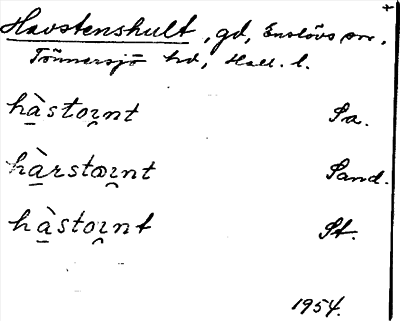 Havstenshult, gd, Enslövs sn.
Tönnersjö hd, Hall. l.
hàstoꭎnt Sa.
hàrstoꭎnt Sand.
hàstoꭎnt St.
1954.